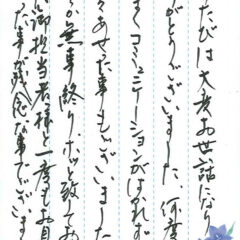 たびは大変お世話になり
がとうございました、何度
まくコミュニケーションがはかれず
あせった事もございました
無事終り、ホッと致してお
御担当者様に一度もお目
た事が残念な事でございま